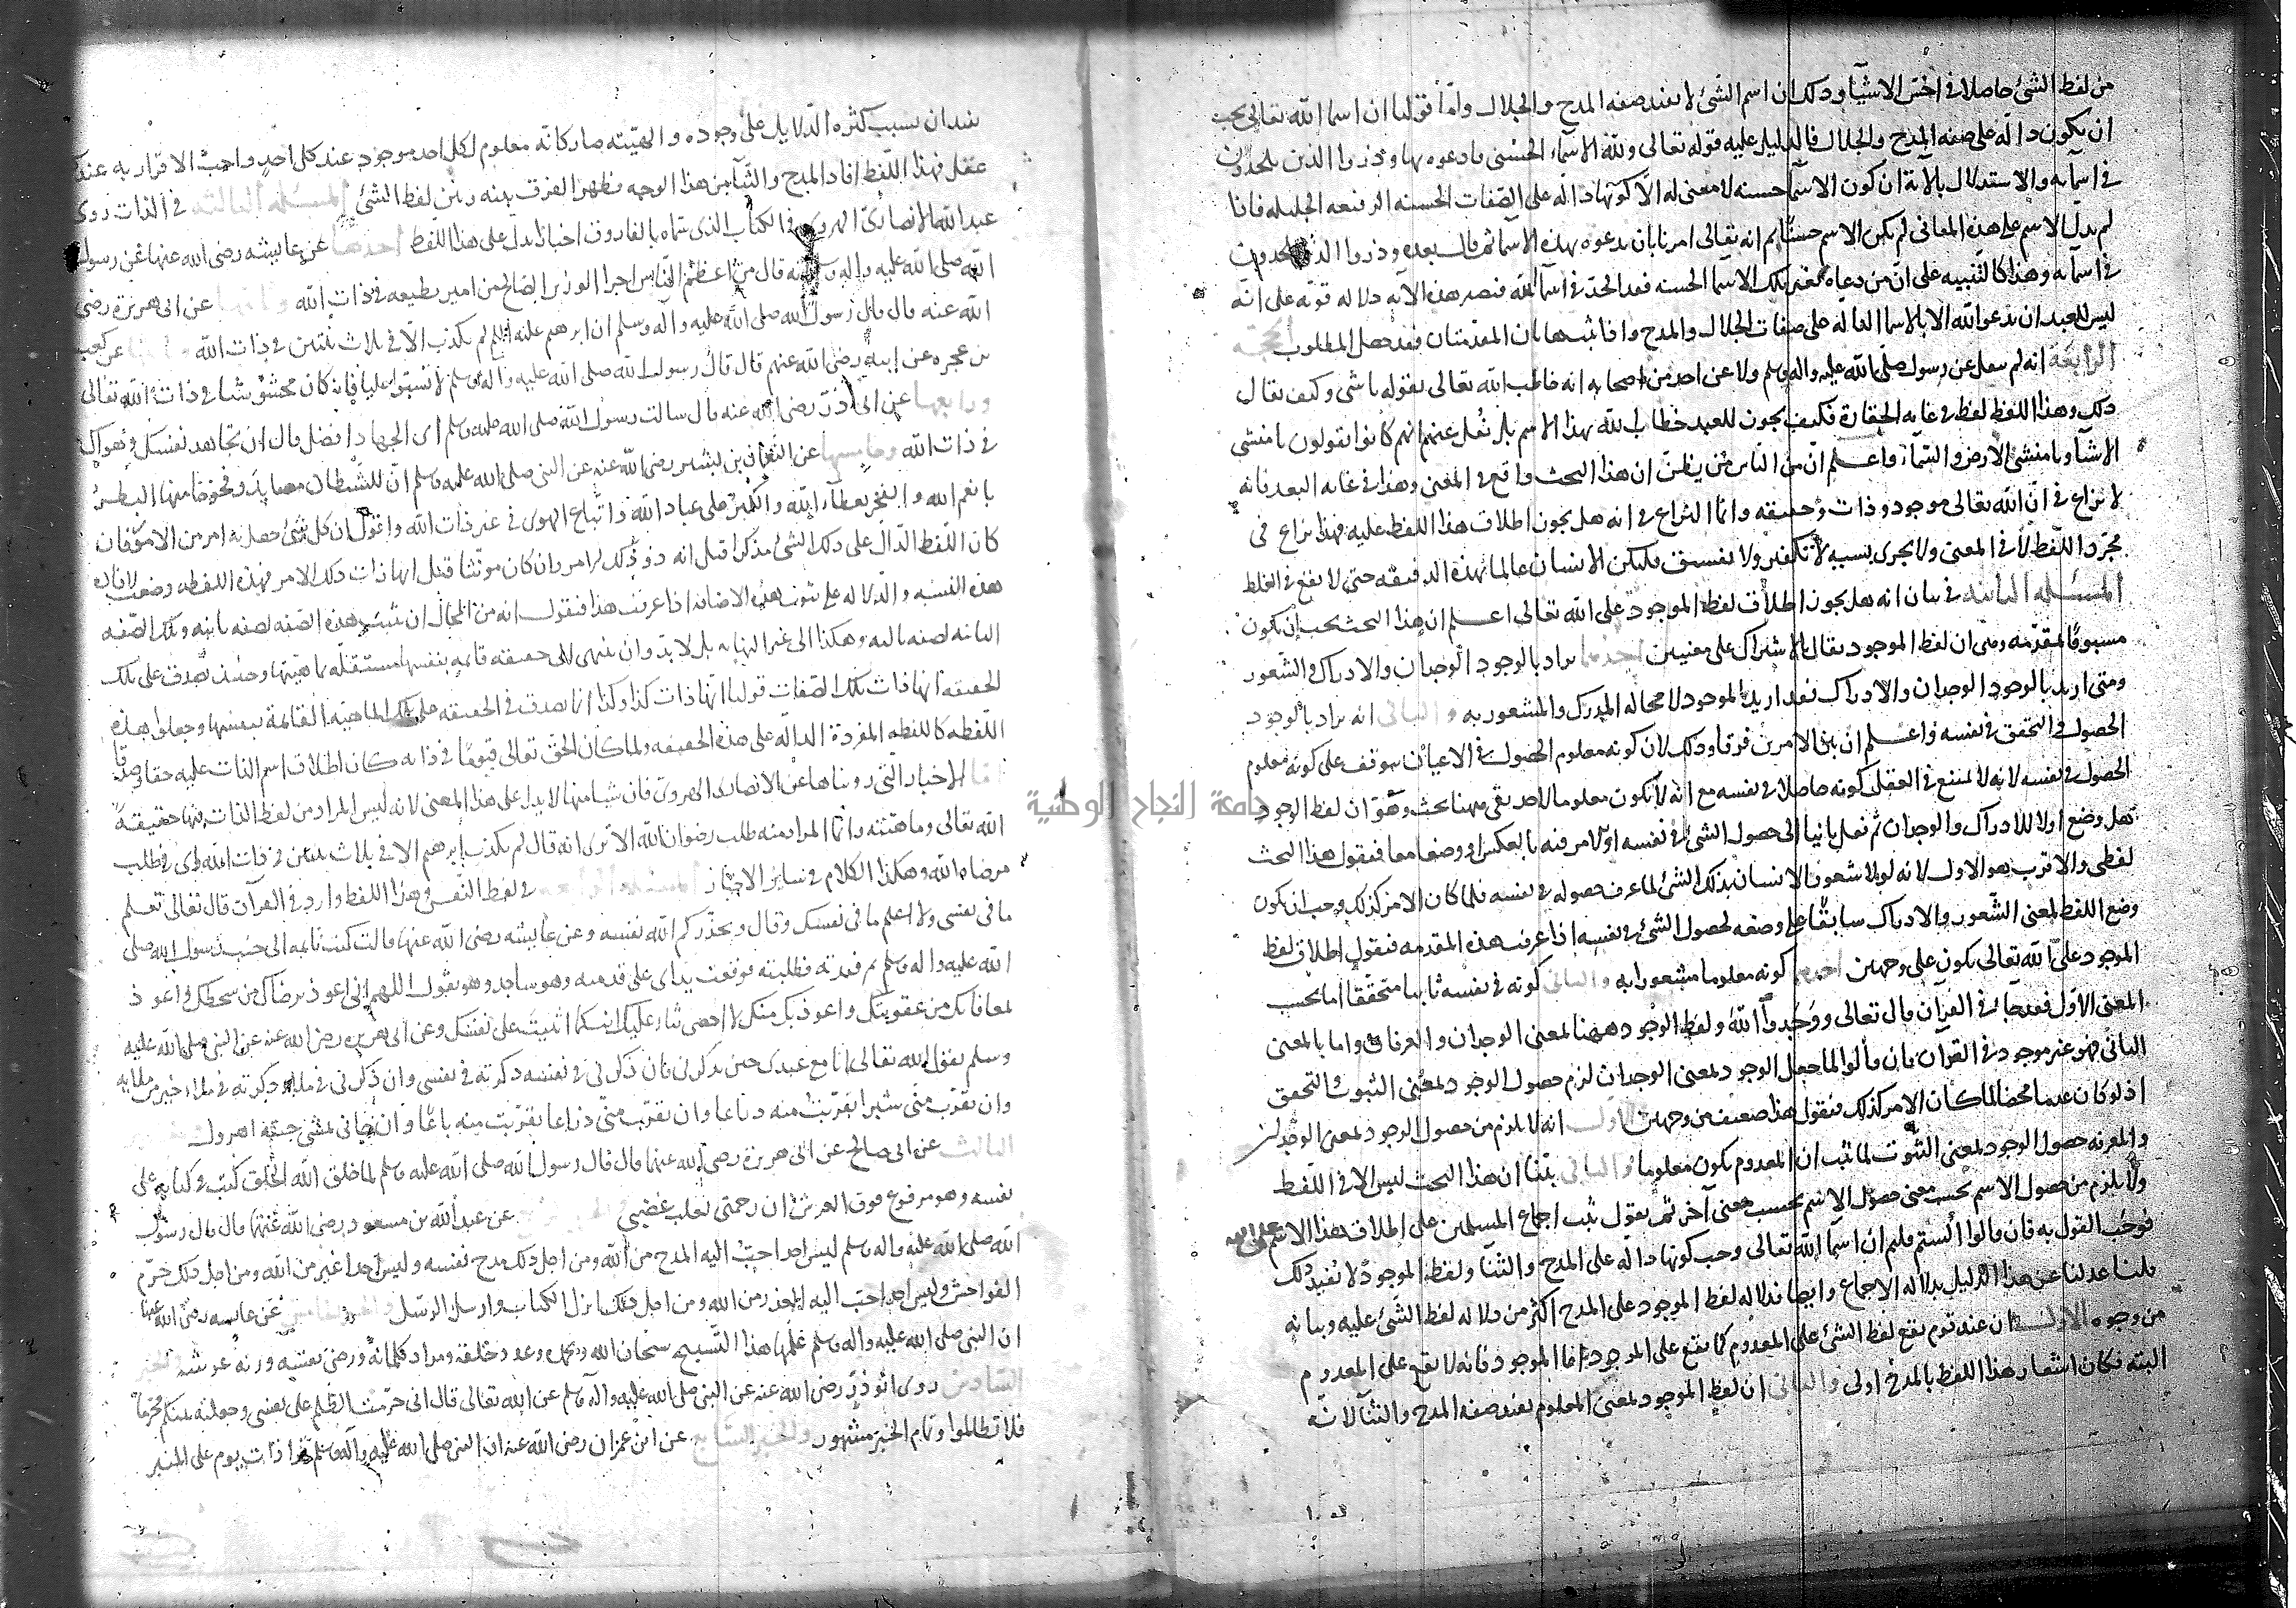 من لفظ الشئ حاصلا في اخس الاشيآء وذلك ان اسم الشئ لا يفيد صفه المدح والجلال واما قولنا ان اسما الله تعالى يجب
ان يكون دالّه على صفه المدح والجلال فالدليل عليه قوله تعالى ولله الاسمآء الحسنى فادعوه بها وذروا الذين يلحدون
في اسمآيه والاستدلال بالاية ان كون الاسما حسنه لا معنى له الا كونها دالّه على الصّفات الحسنه الرفيعه الجليله فاذا
لم يدل الاسم على هذه المعانى لم يكن الاسم حسنًا ثم انه تعالى امرنا بان ندعوه بهذه الاسما ثم قال بعده وذروا الذين يلحدون
في اسمآيه وهذا كالتنبيه على ان من دعاه بغير تلك الاسما الحسنه فقد الحد في اسما الله فتصير هذه الآيه دلاله قويّه على انه
ليس للعبد ان يدعو الله الا بالاسما الدالّه على صفات الجلال والمدح واذا ثبت هاتان المقدمتان فقد حصل المطلوب الحجّه
الرابعة انه لم ينقل عن رسول الله صلى الله عليه واله وسلم ولا عن احد من اصحابه انه خاطب الله تعالى بقوله ياشى وكيف يقال
ذلك وهذا اللفظ لفظ في غايه الحقارة فكيف يجوز للعبد خطاب الله بهذا الاسم بل نُقل عنهم انهم كانوا يقولون يا منشى
الاشيآ ويا منشئ الارض والسّمآء واعلم ان من النّاس من يظنّ ان هذا البحث واقع في المعنى وهذا في غايه البعد فانه
لا نزاع في انّ الله تعالى موجود وذات وحقيقه وانّما النزاع في انه هل يجوز اطلاق هذا اللفظ عليه فهذا نزاع في
مجرّد اللّفظ لا في المعنى ولا يجرى بسببه لا تكفير ولا تفسيق فليكن الانسان عالما بهذه الدقيقه حتى لا يقع في الغلط
المسئله الثانيه في بيان انه هل يجوز اطلاق لفظ الموجود على الله تعالى اعلم ان هذا البحث يجب ان يكون
مسبوقًا بمقدّمه وهى ان لفظ الموجود يقال بالاشتراك على معنيين احدهما يراد بالوجود الوجدان والادراك والشّعور
ومتى اريد بالوجود الوجدان والادراك فقد اريد بالموجود لا محاله المدرك والمشعور به والثانى انه يراد بالوجود
الحصول والتحقق في نفسه واعلم ان بين الامرين فرقا وذلك لان كونه معلوم الحصول في الاعيان يتوقف على كونه معلوم
الحصول في نفسه لانه لا يمتنع في العقل كونه حاصلا في نفسه مع انه لا يكون معلوما لاحد بقى ههنا بحث وهو ان لفظ الوجود
هل وضع اولا للادراك والوجدان ثم نقل ثانيا الى حصول الشئ في نفسه او الامر فيه بالعكس او وضعا معا فنقول هذا البحث
لفظى والاقرب هو الاول لانه لولا شعور الانسان بذلك الشئ لما عرف حصوله في نفسه فلما كان الامر كذلك وجب ان يكون
وضع اللفظ لمعنى الشّعور والادراك سابقًا على وضعه لحصول الشئ في نفسه اذا عرفت هذه المقدمه فنقول اطلاق لفظ
الموجود على الله تعالى يكون على وجهين احدهما كونه معلوما مشعورا به والثانى كونه في نفسه ثابتا متحققًا اما بحسب
المعنى الاوّل فقد جآء في القرآن قال تعالى ووجدوا الله ولفظ الوجود ههنا بمعنى الوجدان والعرفان واما بالمعنى
الثانى فهو غير موجود في القرآن فان قالوا لما جعل الوجود بمعنى الوجدان لزم حصول الوجود بمعنى الثبوت والتحقق
اذ لو كان عدما محضا لما كان الامر كذلك فنقول هذا ضعيف من وجهين الاول انه لا يلزم من حصول الوجود بمعنى الوجدان
والمعرفه حصول الوجود بمعنى الثّبوت لما ثبت ان المعدوم يكون معلوما والثانى بيّنا ان هذا البحث ليس الا في اللّفظ
ولا يلزم من حصول الاسم بحسب معنى حصول الاسم بحسب معنى آخر ثم نقول ثبت اجماع المسلمين على اطلاق هذا الاسم على الله
فوجب القول به فان قالوا الستم قلتم ان اسما الله تعالى وجب كونها دالّه على المدح والثنا ولفظ الموجود لا يفيد ذلك
قلنا عدلنا عن هذا الدليل بدلاله الاجماع وايضا فدلاله لفظ الموجود على المدح اكثر من دلاله لفظ الشئ عليه وبيانه
من وجوه الاول ان عند قوم يقع لفظ الشئ على المعدوم كما يقع على الموجود اما الموجود فانه لا يقع على المعدوم
البته فكان اشعار هذا اللفظ بالمدح اولى والثانى ان لفظ الموجود بمعنى المعلوم يفيد صفه المدح والثنآ لانه
يفيد ان بسبب كثره الدّلايل على وجوده والهيّته صار كانّه معلوم لكل احد موجود عند كل احدٍ واجب الاقرار به عند كل
عقل فهذا اللّفظ افاد المدح والثّنآ من هذا الوجه فظهر الفرق بينه وبين لفظ الشئ المسئله الثالثه في الذات روى
عبد الله الانصارىّ الهروى في الكتاب الذى سمّاه بالفاروق اخبارا تدل على هذا اللفظ احدها عن عايشه رضى الله عنها عن رسول
الله صلى الله عليه واله وسلم انه قال من اعظم النّاس اجرا الوزير الصّالح من امير يطيعه في ذات الله وثانيها عن ابى هريرة رضى
الله عنه قال قال رسول الله صلى الله عليه وآله وسلم ان ابرهيم عليه السلام لم يكذب الّا في ثلاث ثنتين في ذات الله وثالثها عن كعب
بن عجره عن ابيه رضى الله عنهم قال قال رسول الله صلى الله عليه وآله وسلم لا تسبّوا عليا فانه كان مخشوشنا في ذات الله تعالى
ورابعها عن ابى ذرّ رضى الله عنه قال سالت رسول الله صلى الله عليه وسلم اى الجهاد افضل قال ان تجاهد نفسك وهواك
في ذات الله وخامسها عن النعمان بن بشير رضى الله عنه عن النبى صلى الله عليه وسلم انّ للشيطان مصايد وفخوخا منها البطر
بانعم الله والفخر بعطآء الله والكبر على عباد الله واتّباع الهوى في غير ذات الله واقول ان كل شئ حصل به امر من الامور فان
كان اللّفظ الدّال على ذلك الشئ مذكرا قيل انه ذو ذلك الامر وان كان مونّثا قيل انها ذات ذلك الامر فهذه اللفظه وضعت لافاده
هذه النسبه والدّلاله على ثبوت هذه الاضافه اذا عرفت هذا فنقول انه من المحال ان تثبت هذه الصّفه لصفه ثانيه وتلك الصّفه
الثانيه لصفه ثالثه وهكذا الى غير النهايه بل لا بد وان تنتهى الى حقيقه قايمه بنفسها مستقلّه بماهيّتها وحينئذ يصدق على تلك
الحقيقه انها ذات تلك الصّفات فقولنا انها ذات كذا وكذا انما يصدق في الحقيقه على تلك الماهيّه القايمة بنفسها وجعلوا هذه
اللّفظه كاللفظه المفردة الدالّه على هذه الحقيقه ولما كان الحق تعالى قيّومًا في ذاته كان اطلاق اسم الذات عليه حقا وصدقا
امّا الاخبار التى رويناها عن الانصارى الهروى فان شيا منها لا يدل على هذا المعنى لانه ليس المراد من لفظ الذات فيها حقيقة
الله تعالى وماهيّته وانّما المراد منه طلب رضوان الله الا ترى انه قال لم يكذب ابرهيم الا في ثلاث ثنتين في ذات الله اى في طلب
مرضاه الله وهكذا الكلام في ساير الاخبار المسئله الرابعه في لفظ النّفس وهذا اللفظ وارد في القرآن قال تعالى تعلم
ما في نفسى ولا اعلم ما في نفسك وقال ويحذّركم الله نفسه وعن عايشه رضى الله عنها قالت كنت نايمه الى جنب رسول الله صلى
الله عليه واله وسلم ثم فقدته فطلبته فوقعت يداى على قدميه وهو ساجد وهو يقول اللهم انى اعوذ برضاك من سخطك واعوذ
بمعافاتك من عقوبتك واعوذ بك منك لا احصى ثناءً عليك انت كما اثنيت على نفسك وعن ابى هريره رضى الله عنه عن النبى صلى الله عليه
وسلم يقول الله تعالى انا مع عبدى حين يذكرنى فان ذكرنى في نفسه ذكرته في نفسى وان ذكرنى في ملاء ذكرته في ملاء خير من ملايه
وان تقرب منى شبرا تقربت منه ذراعا وان تقرّب منّى ذراعا تقرّبت منه باعًا وان جانى يمشى جيته اهرول
الثالث عن ابى صالح عن ابى هريرة رضى الله عنهما قال قال رسول الله صلى الله عليه وسلم لما خلق الله الخلق كتب في كتابه على
نفسه وهو مرفوع فوق العرش ان رحمتى تغلب غضبى عن عبد الله بن مسعود رضى الله عنهما قال قال رسول
الله صلى الله عليه واله وسلم ليس احد احبّ اليه المدح من الله ومن اجل ذلك مدح نفسه وليس احد اغير من الله ومن اجل ذلك حرّم
الفواحش وليس احد احبّ اليه العذر من الله ومن اجل ذلك انزل الكتاب وارسل الرسل والخبر الخامس عن عايشه رضى الله عنها
ان النبى صلى الله عليه واله وسلم علّمها هذا التّسبيح سبحان الله وبحمده عدد خلقه ومداد كلماته ورضى نفسه وزنه عرشه الخبر
السّادس روى ابو ذرّ رضى الله عنه عن النبى صلى الله عليه واله وسلم عن الله تعالى قال انى حرّمت الظّلم على نفسى وجعلته بينكم محرّما
فلا تظالموا وتمام الخبر مشهور والخبر السّابع عن ابن عمران رضى الله عنه ان النبى صلى الله عليه واله وسلم قرا ذات يوم على المنبر
جامعة النجاح الوطنية